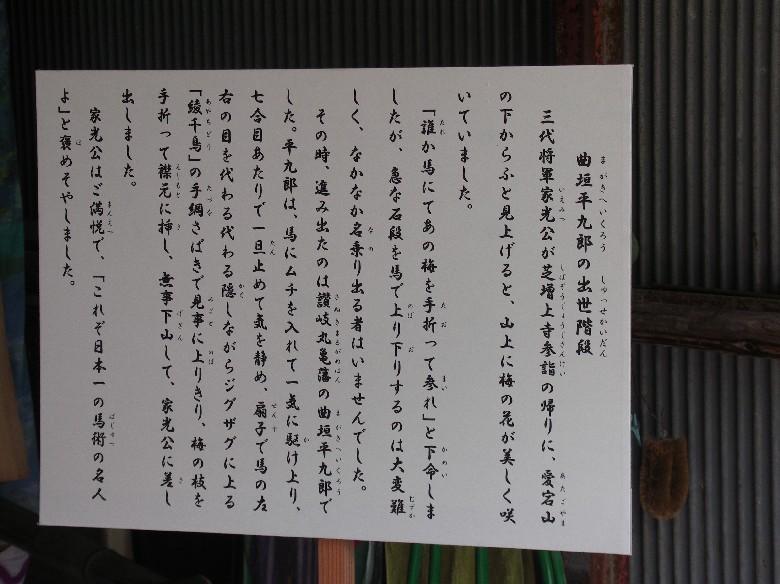 曲垣平九郎の出世階段
三代将軍家光公が芝増上寺参詣の帰りに、愛宕山
の下からふと見上げると、山上に梅の花が美しく咲
いていました。
「誰か馬にてあの梅を手折って参れ」と下命しま
したが、急な石段を馬で上り下りするのは大変難
しく、なかなか名乗り出る者はいませんでした。
その時、進み出たのは讃岐丸亀藩の曲垣平九郎で
した。平九郎は、馬にムチを入れて一気に駆け上り、
七合目あたりで一旦止めて気を静め、扇子で馬の左
右の目を代わる代わる隠しながらジグザグに上る
「綾千鳥」の手綱さばきで見事に上りきり、梅の枝を
手折って襟元に挿し、無事下山して、家光公に差し
出しました。
家光公はご満悦で、「これぞ日本一の馬術の名人
よ」と褒めそやしました。